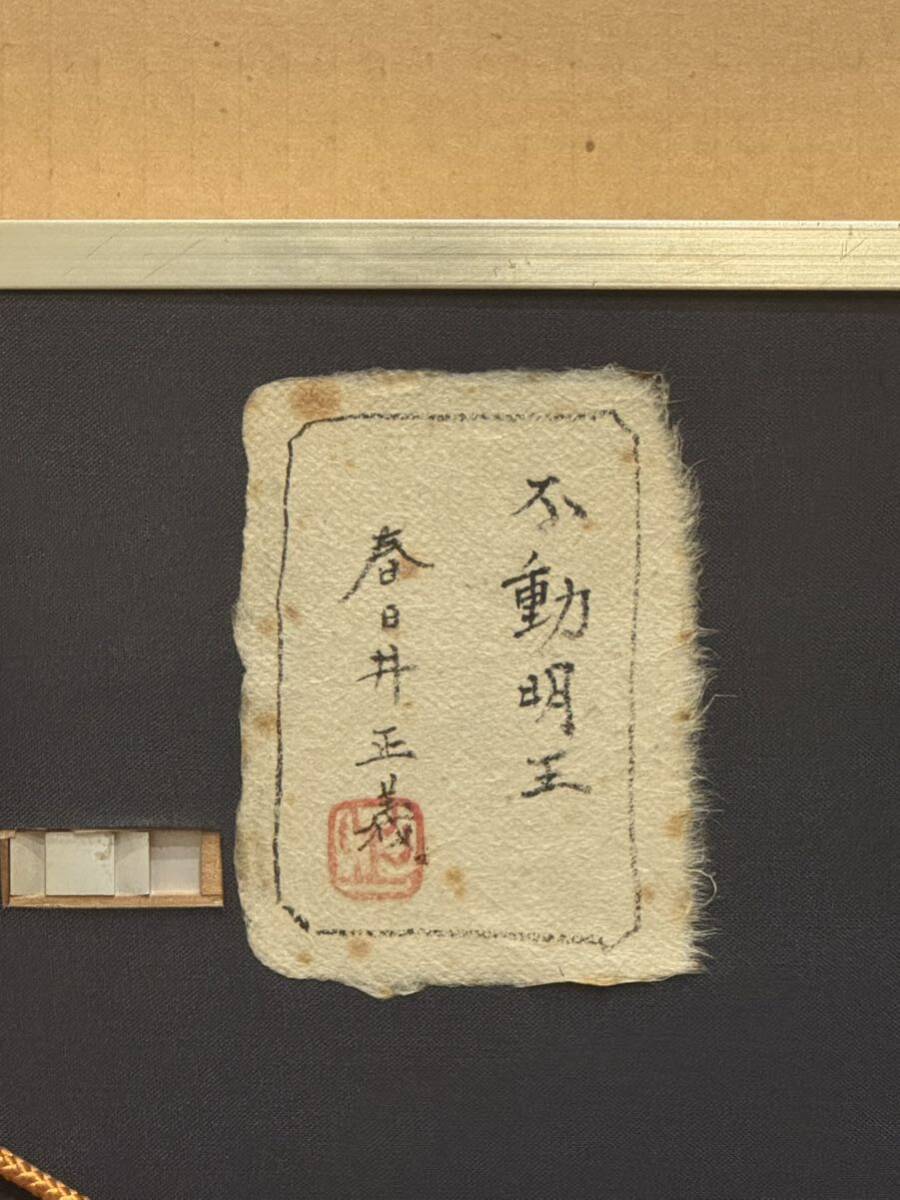 不動明王
春日井正義